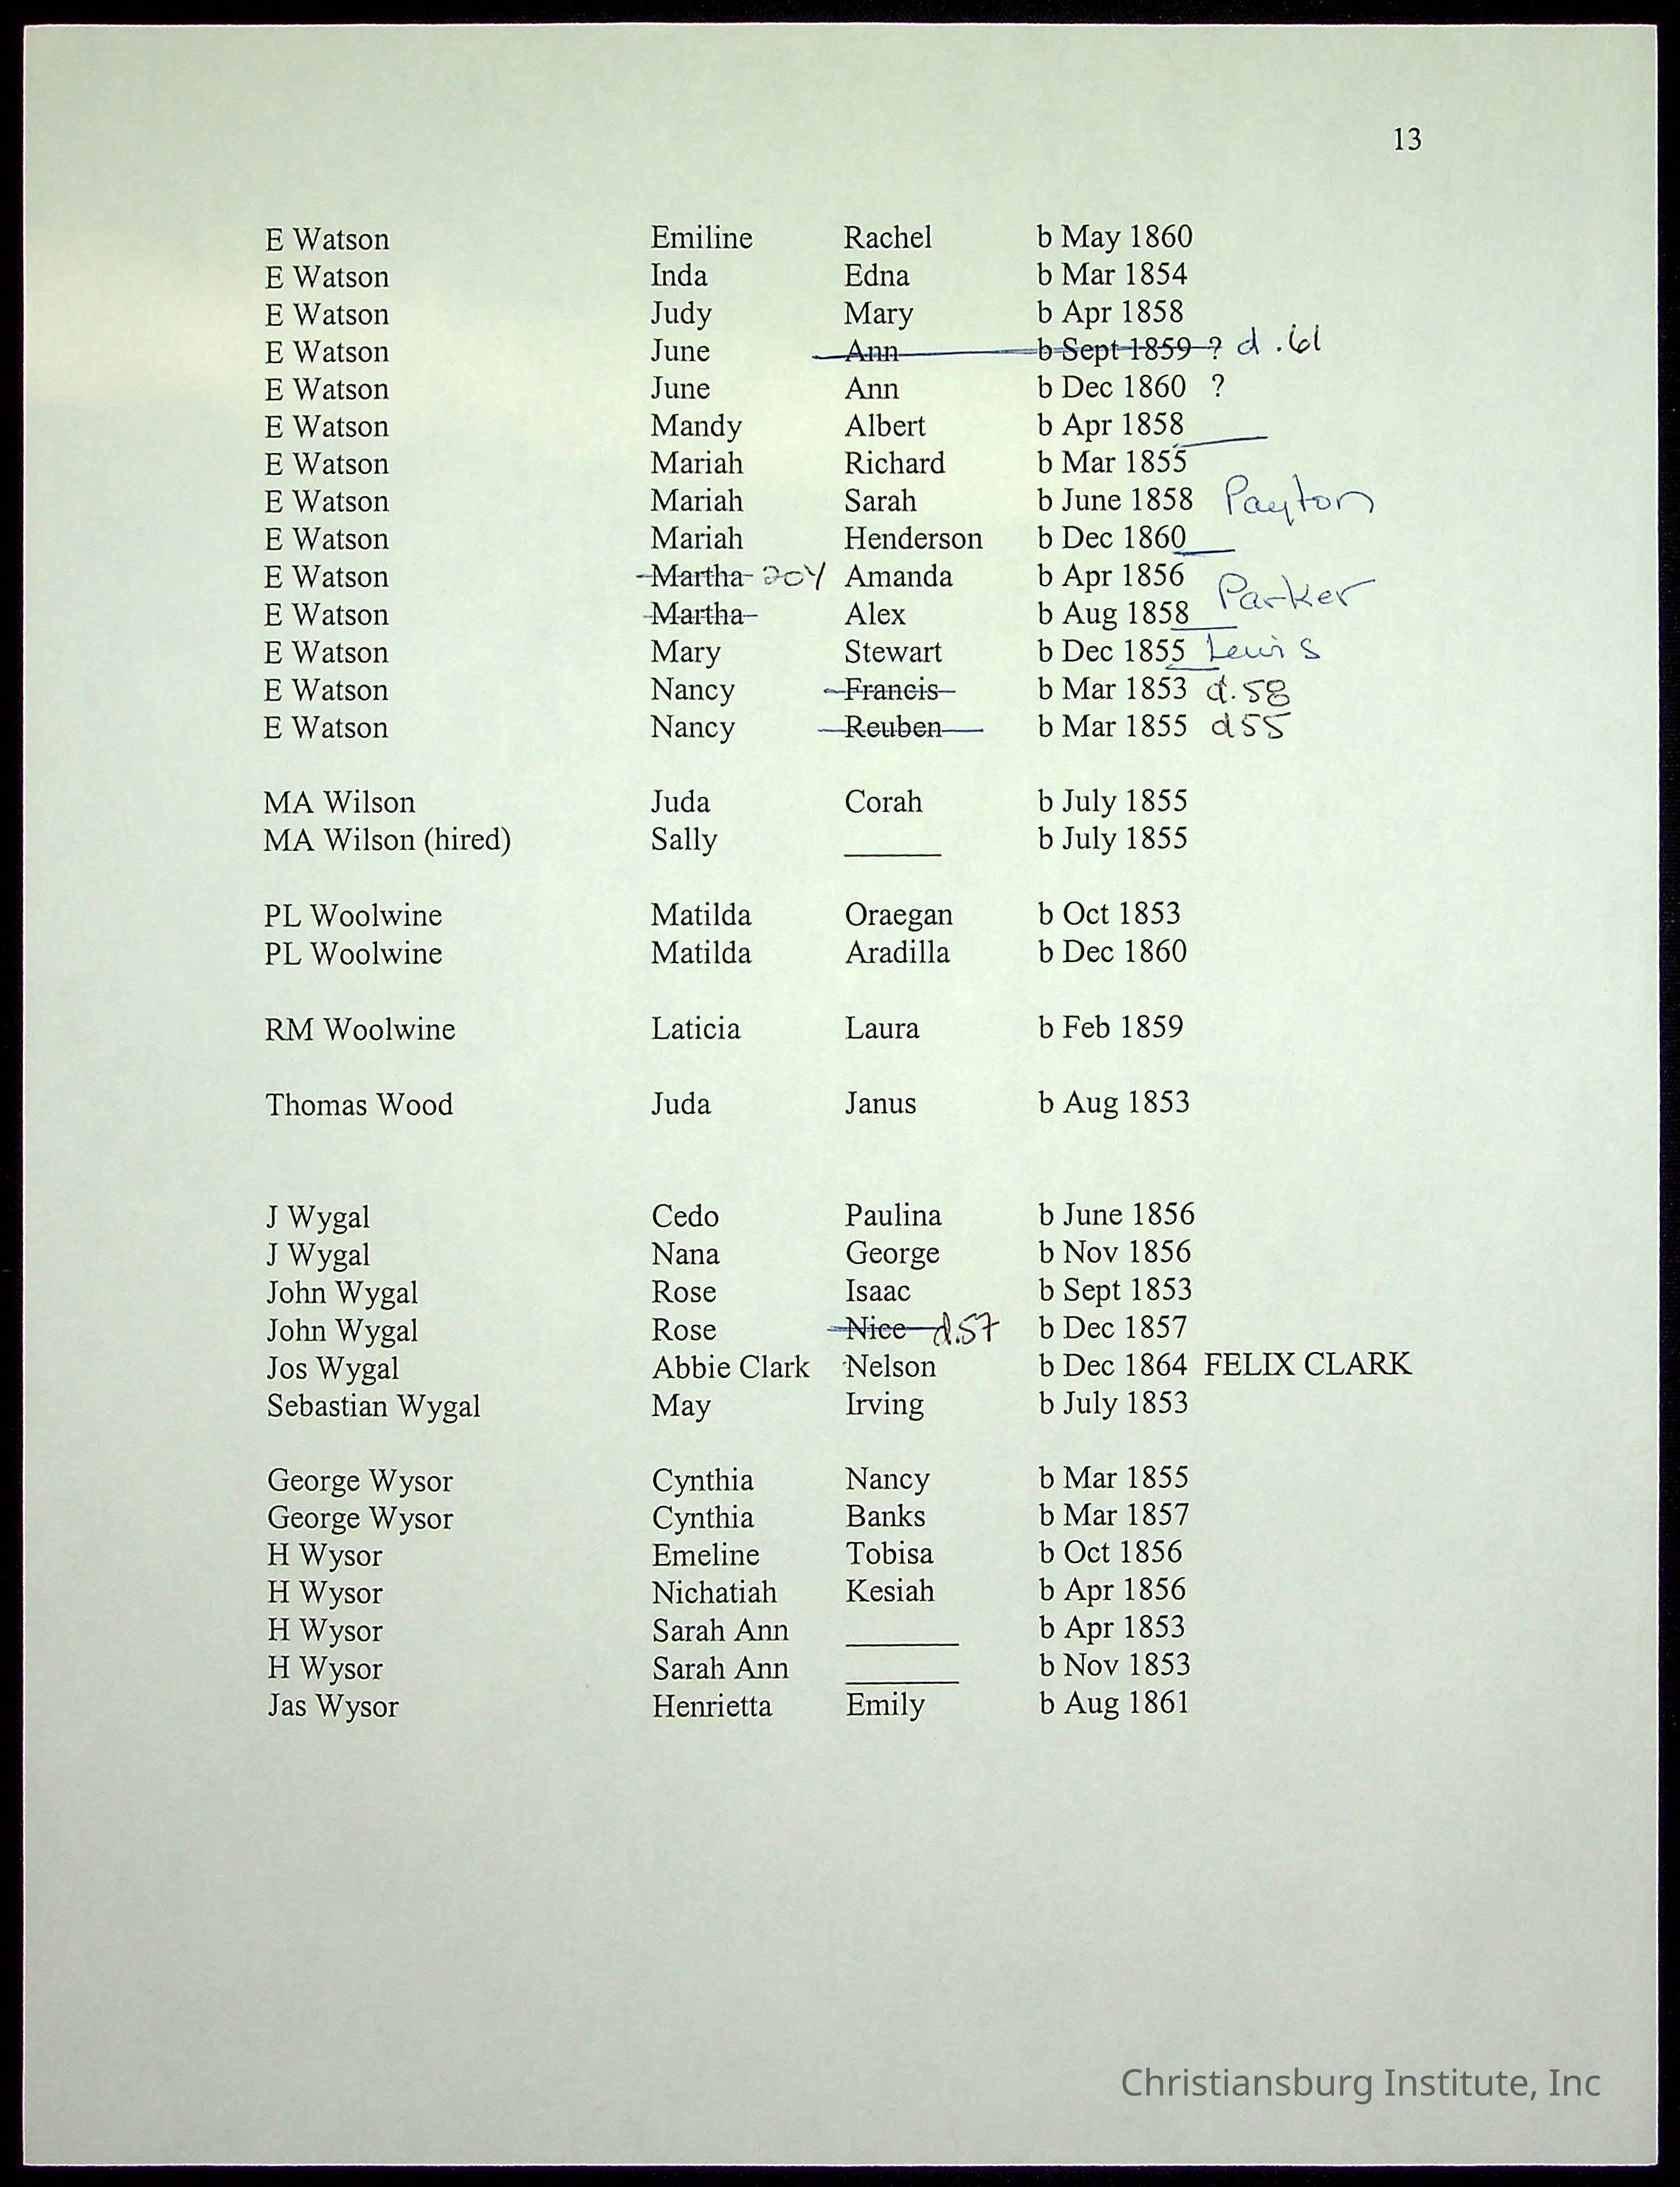 13
E Watson Emiline Rachel b May 1860
E Watson Inda Edna b Mar 1854
E Watson Judy Mary b Apr 1858
E Watson June Ann b Sept 1859 ? d .61
E Watson June Ann b Dec 1860 ?
E Watson Mandy Albert b Apr 1858
E Watson Mariah Richard b Mar 1855
E Watson Mariah Sarah b June 1858 Payton
E Watson Mariah Henderson b Dec 1860
E Watson Martha Amanda b Apr 1856 Parker
E Watson Martha Alex b Aug 1858
E Watson Mary Stewart b Dec 1855 Lewis
E Watson Nancy Francis b Mar 1853 d.58
E Watson Nancy Reuben b Mar 1855 d55
MA Wilson Juda Corah b July 1855
MA Wilson (hired) Sally ______ b July 1855
PL Woolwine Matilda Oraegan b Oct 1853
PL Woolwine Matilda Aradilla b Dec 1860
RM Woolwine Laticia Laura b Feb 1859
Thomas Wood Juda Janus b Aug 1853
J Wygal Cedo Paulina b June 1856
J Wygal Nana George b Nov 1856
John Wygal Rose Isaac b Sept 1853
John Wygal Rose Nice d.57 b Dec 1857
Jos Wygal Abbie Clark Nelson b Dec 1864 FELIX CLARK
Sebastian Wygal May Irving b July 1853
George Wysor Cynthia Nancy b Mar 1855
George Wysor Cynthia Banks b Mar 1857
H Wysor Emeline Tobisa b Oct 1856
H Wysor Nichatiah Kesiah b Apr 1856
H Wysor Sarah Ann _______ b Apr 1853
H Wysor Sarah Ann _______ b Nov 1853
Jas Wysor Henrietta Emily b Aug 1861
Christiansburg Institute, Inc